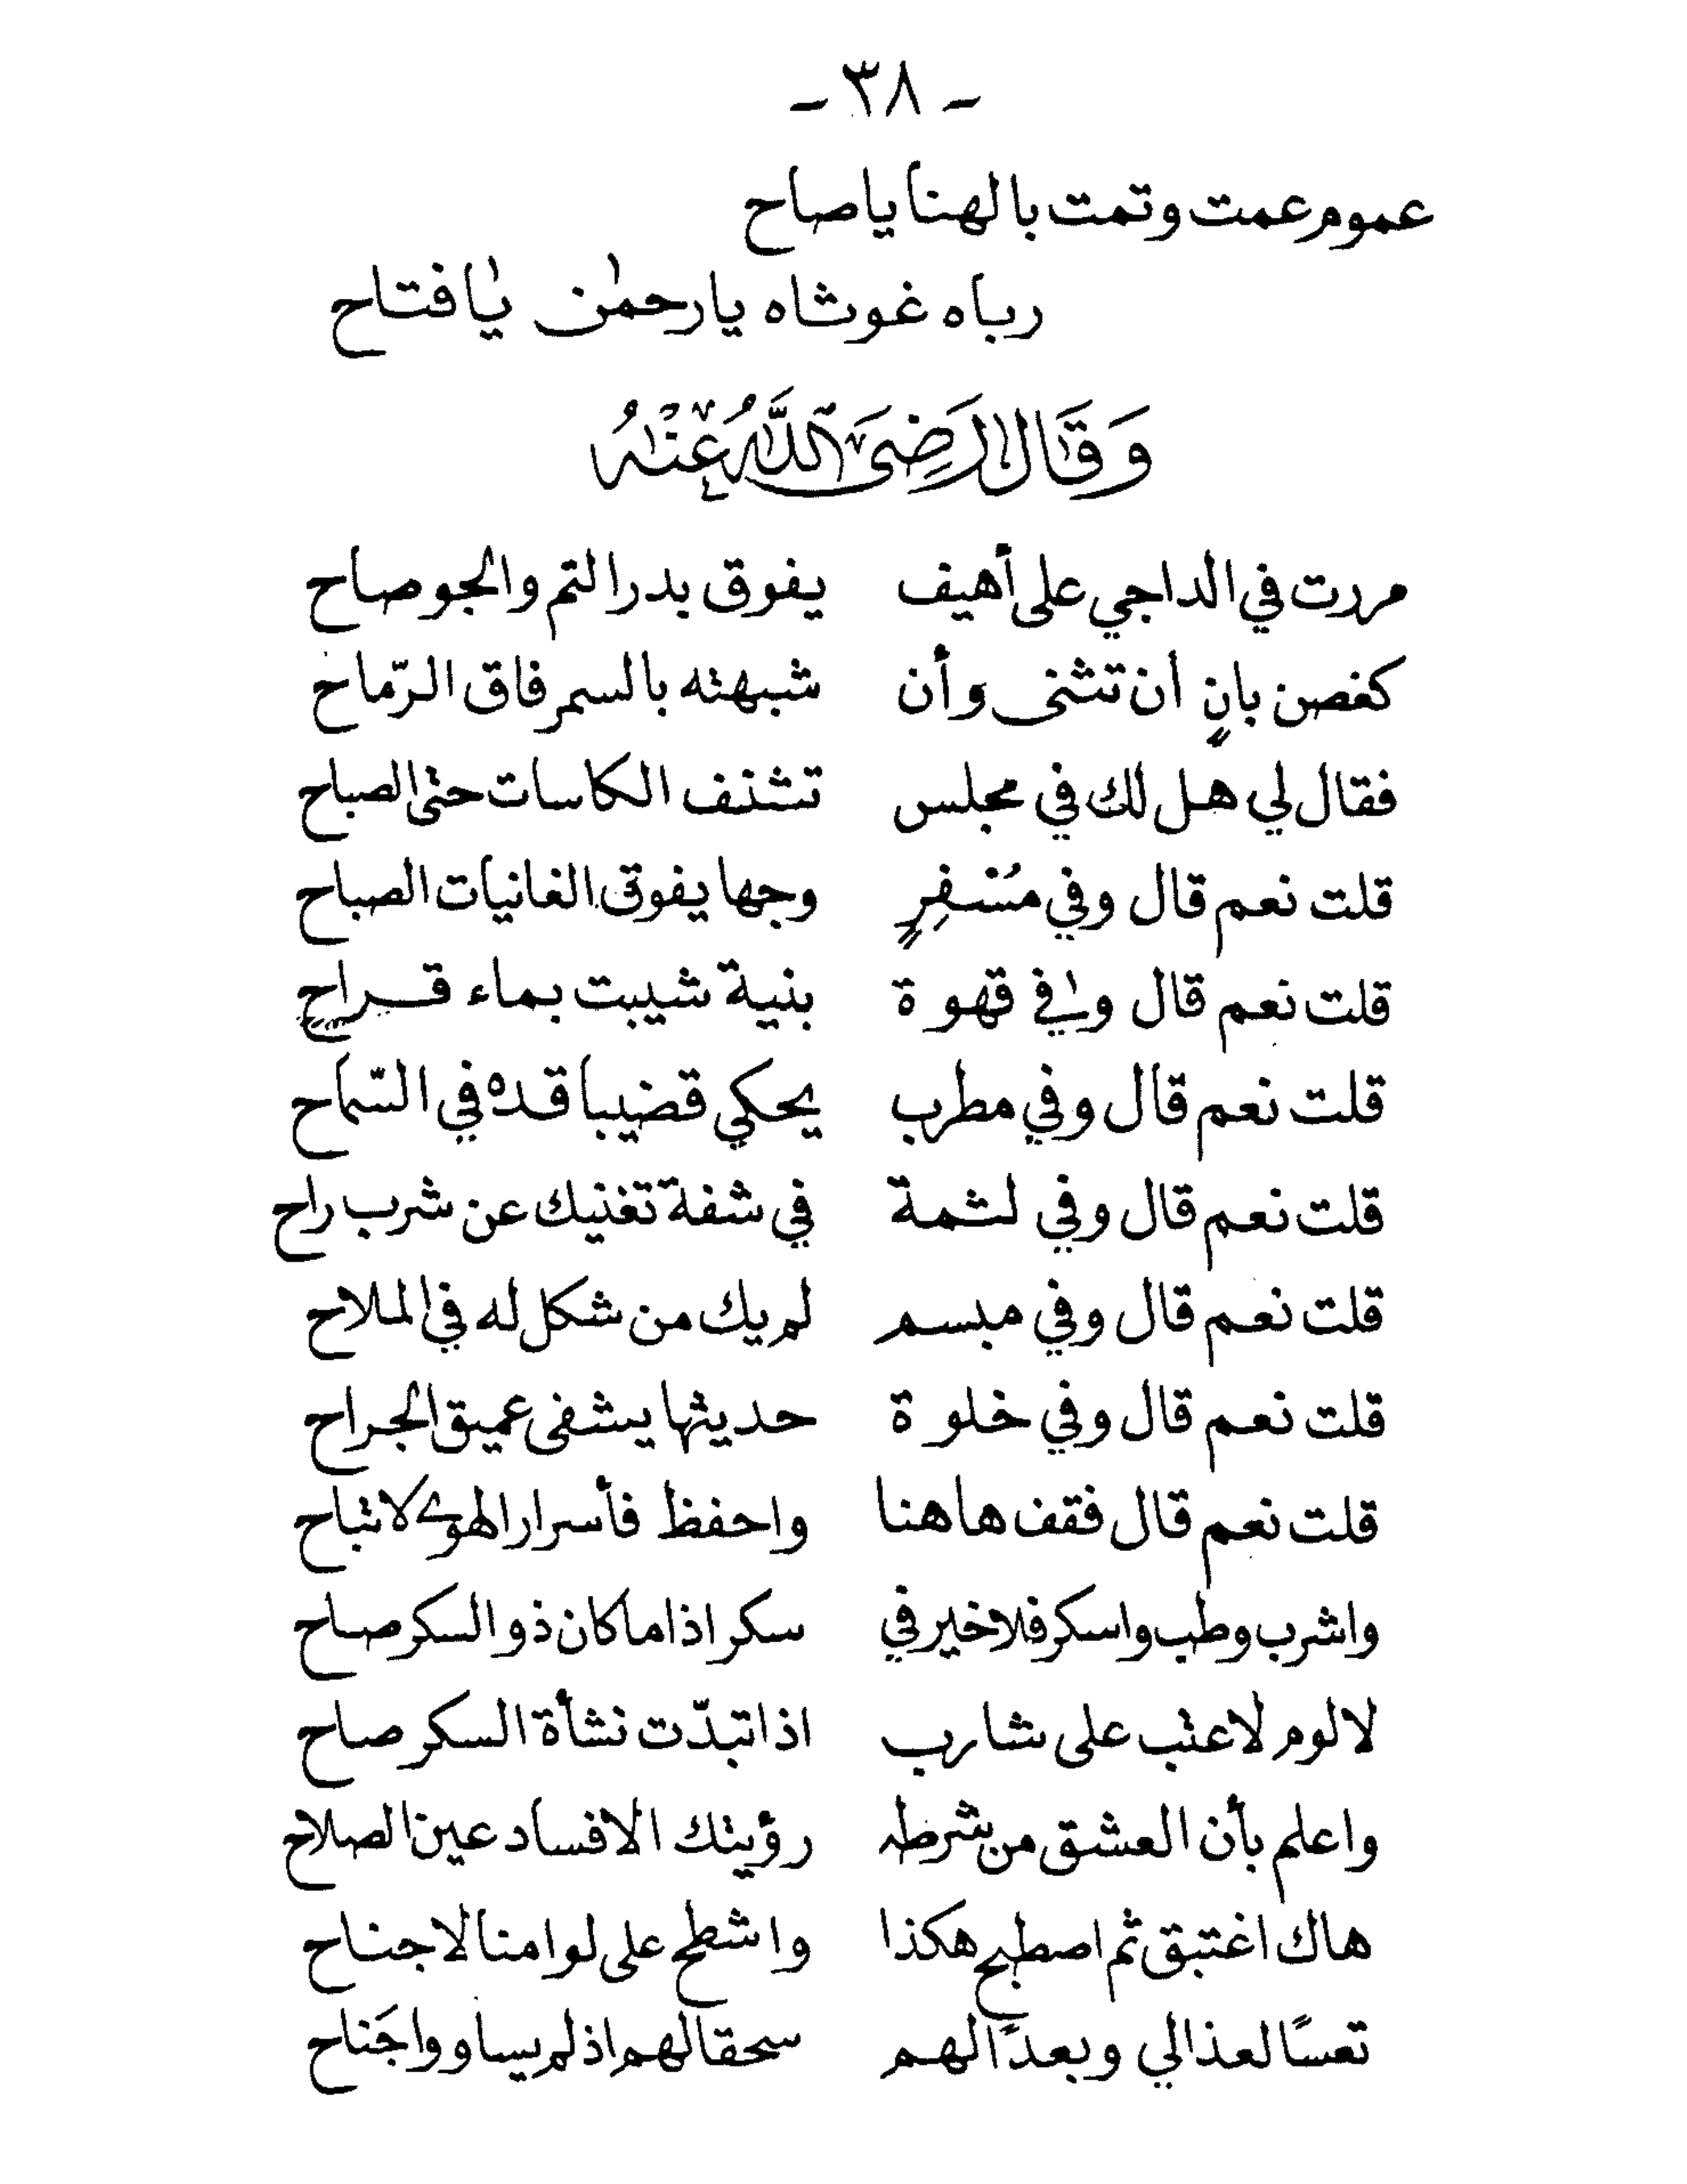 - ٣٨ -
عموم عمت وتمت بالهنا يا صاح
رباه غوثاه يا رحمٰن يا فتاح
وَقَالَ رَضِىَ اللَّهُ عَنْهُ
مررت في الداجي على أهيف يفوق بدر التم والجو صاح
كغصن بانٍ أن تثنى وأن شبهته بالسمر فاق الرّماح
فقال لي هل لك في مجلس تشنف الكاسات حتى الصباح
قلت نعم قال وفي مُسْفِرٍ وجها يفوق الغانيات الصباح
قلت نعم قال وفي قهوة بنية شيبت بماء قراحٍ
قلت نعم قال وفي مطرب يحكي قضيبا قده في السّماح
قلت نعم قال وفي لثمة في شفة تغنيك عن شرب راح
قلت نعم قال وفي مبسم لم يك من شكل له في الملاح
قلت نعم قال وفي خلوة حديثها يشفى عميق الجراح
قلت نعم قال فقف هاهنا واحفظ فأسرار الهوى لا تباح
واشرب وطب واسكر فلا خير في سكر اذا ما كان ذو السكر صاح
لا لوم لا عتب على شارب اذا تبدّت نشأة السكر صاح
واعلم بأن العشق من شرطه رؤيتك الافساد عين الصلاح
هاك اغتبق ثم اصطبح هكذا واشطح على لوامنا لا جناح
تعسًا لعذالي وبعدًا لهم سحقا لهم اذ لم يساووا جَناح